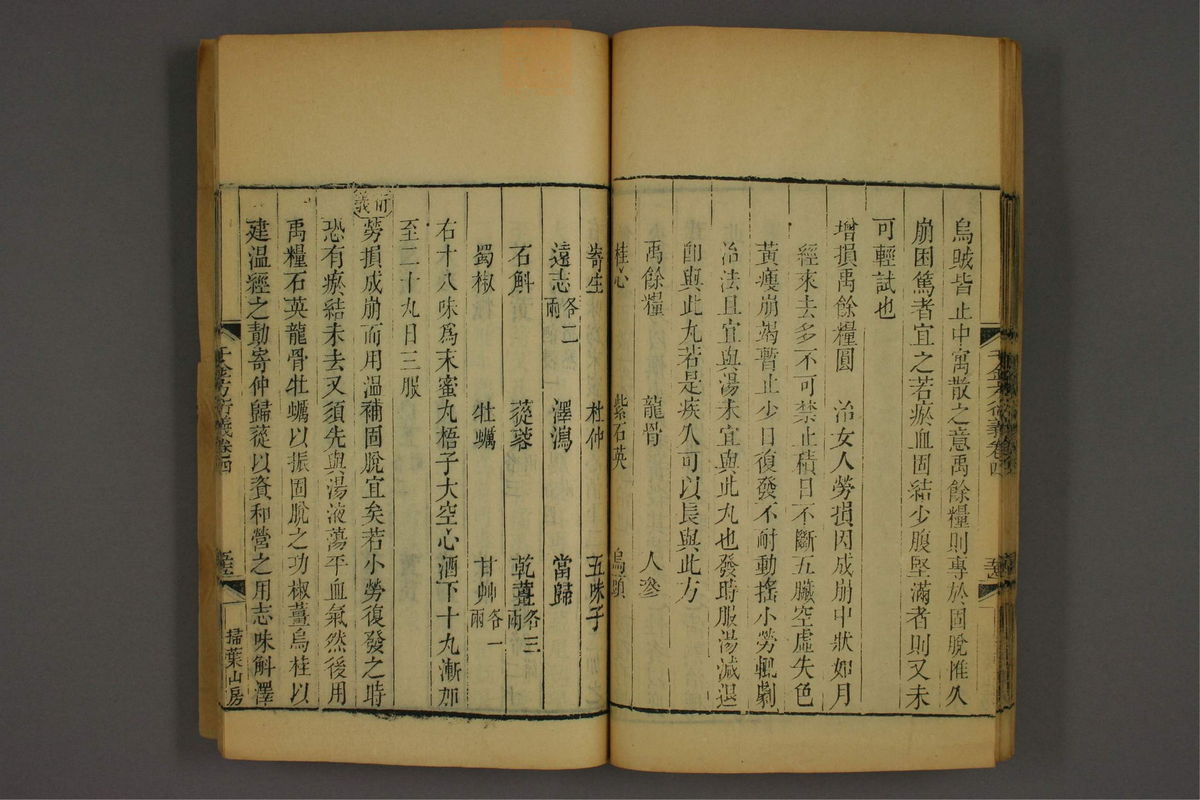 烏蛾皆止中寓散之意禹餘糧則專於固脫惟久
崩困篤者宜之若瘀血固結少腹堅滿者則又未
可輕試也
增損禹餘糧圓　治女人勞損因成崩中狀如月
經來去多不可禁止積日不斷五臟空虛失色
黃瘦崩竭暫止少日復發不耐動搖小勞輒劇
冶法且宜與湯未宜與此丸也發時服湯減退
卽與此丸若是疾久可以長與此方
禹餘糧　龍骨　人㕘
桂心　紫石英　烏頭
寄生　杜仲　五味子
遠志各二兩　澤瀉　當歸
石斛　蓯蓉　乾薑各三兩
蜀椒　牡蠣　甘艸各一兩
右十八味爲末蜜丸梧子大空心酒下十丸漸加
至二十丸日三服
衍義
勞損成崩而用溫補固脫宜矣若小勞復發之時
恐有瘀結未去又須先與湯液蕩平血氣然後用
禹糧石英龍骨牡蠣以振固脫之功椒薑烏桂以
建溫經之勳寄仲歸蓯以資和營之用志味斛澤
千金方衍義卷四
掃葉山房